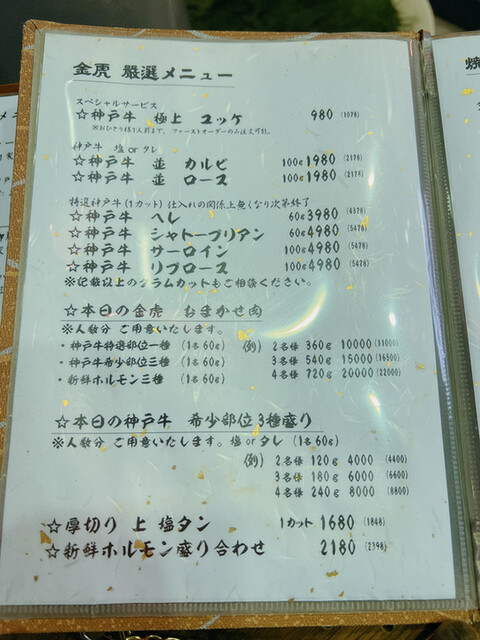 金虎 厳選メニュー
スペシャルサービス
☆神戸牛 極上 ユッケ 980 (1078)
※おひとり様1人前まで、ファーストオーダーのみ注文可能。
神戸牛 塩 or タレ
☆神戸牛 並 カルビ 100g 1980 (2178)
☆神戸牛 並 ロース 100g 1980 (2178)
特選神戸牛(1カット) 仕入れの関係上無くなり次第終了
☆神戸牛 ヘレ 60g 3980 (4378)
☆神戸牛 シャトーブリアン 60g 4980 (5478)
☆神戸牛 サーロイン 100g 4980 (5478)
☆神戸牛 リブロース 100g 4980 (5478)
※記載以上のグラムカットもご相談ください。
☆本日の金虎 おまかせ肉
※人数分 ご用意いたします。
・神戸牛特選部位一種 (1名60g) (例) 2名様 360g 10000 (11000)
・神戸牛希少部位三種 (1名60g) 3名様 540g 15000 (16500)
・新鮮ホルモン三種 (1名60g) 4名様 720g 20000 (22000)
☆本日の神戸牛 希少部位3種盛り
※人数分 ご用意いたします。塩 or タレ (1名60g)
(例) 2名様 120g 4000 (4400)
3名様 180g 6000 (6600)
4名様 240g 8000 (8800)
☆厚切り 上 塩タン 1カット 1680 (1848)
☆新鮮ホルモン盛り合わせ 2180 (2398)
焼